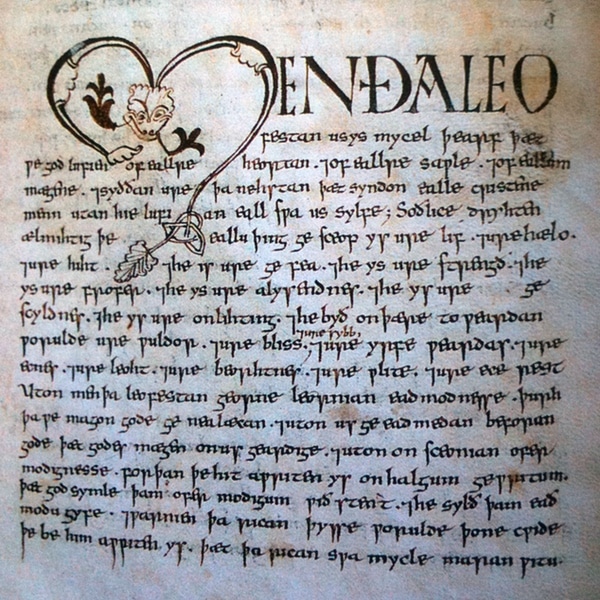 MENÐA LEO
festan us ys mycel þearf þæt
ƿe god lufien of eallre heortan . ⁊ of eallre saƿle . ⁊ of eallum
mægene . ⁊ syððan ure þa nehstan þæt syndon ealle cristene
menn utan hie lufian eall sƿa us sylfe ; Soðlice dryhten
ælmihtig þe eallu þing gesceop ys ure lif . ⁊ ure hælo .
⁊ ure hiht . ⁊ he is ure gefea . ⁊ he ys ure strengð . ⁊ he
ys ure frofer . ⁊ he ys ure alysendnes . ⁊ he ys ure ge
scyldnes . ⁊ he ys ure onlihting . ⁊ he byð on þære toƿeardan
ƿorulde ure ƿuldor . ⁊ ure bliss . ⁊ ure sybb, ⁊ ure yrfe ƿeardas . ⁊ ure
⁊ ure leoht . ⁊ ure beorhtnes . ⁊ ure ƿlite . ⁊ ure ece rest
Uton men þa leofestan georne leornian eadmodnesse . þurh
þa ƿe magon gode genealæcan . ⁊ uton us geeadmedan beforan
gode þæt godes mægen on us geardige . ⁊ uton onscunian ofer
modignesse . forþan þe hit aƿriten ys on halgum geƿritum .
þæt god symle þam ofer modigum ƿið stent . ⁊ he sylð þam ead
modu gyfe . ⁊ ƿarnien þa rican þysse ƿorulde þone cƿide
þe be him aƿriten ys . þæt þa rican sƿa mycle maran ƿitu .